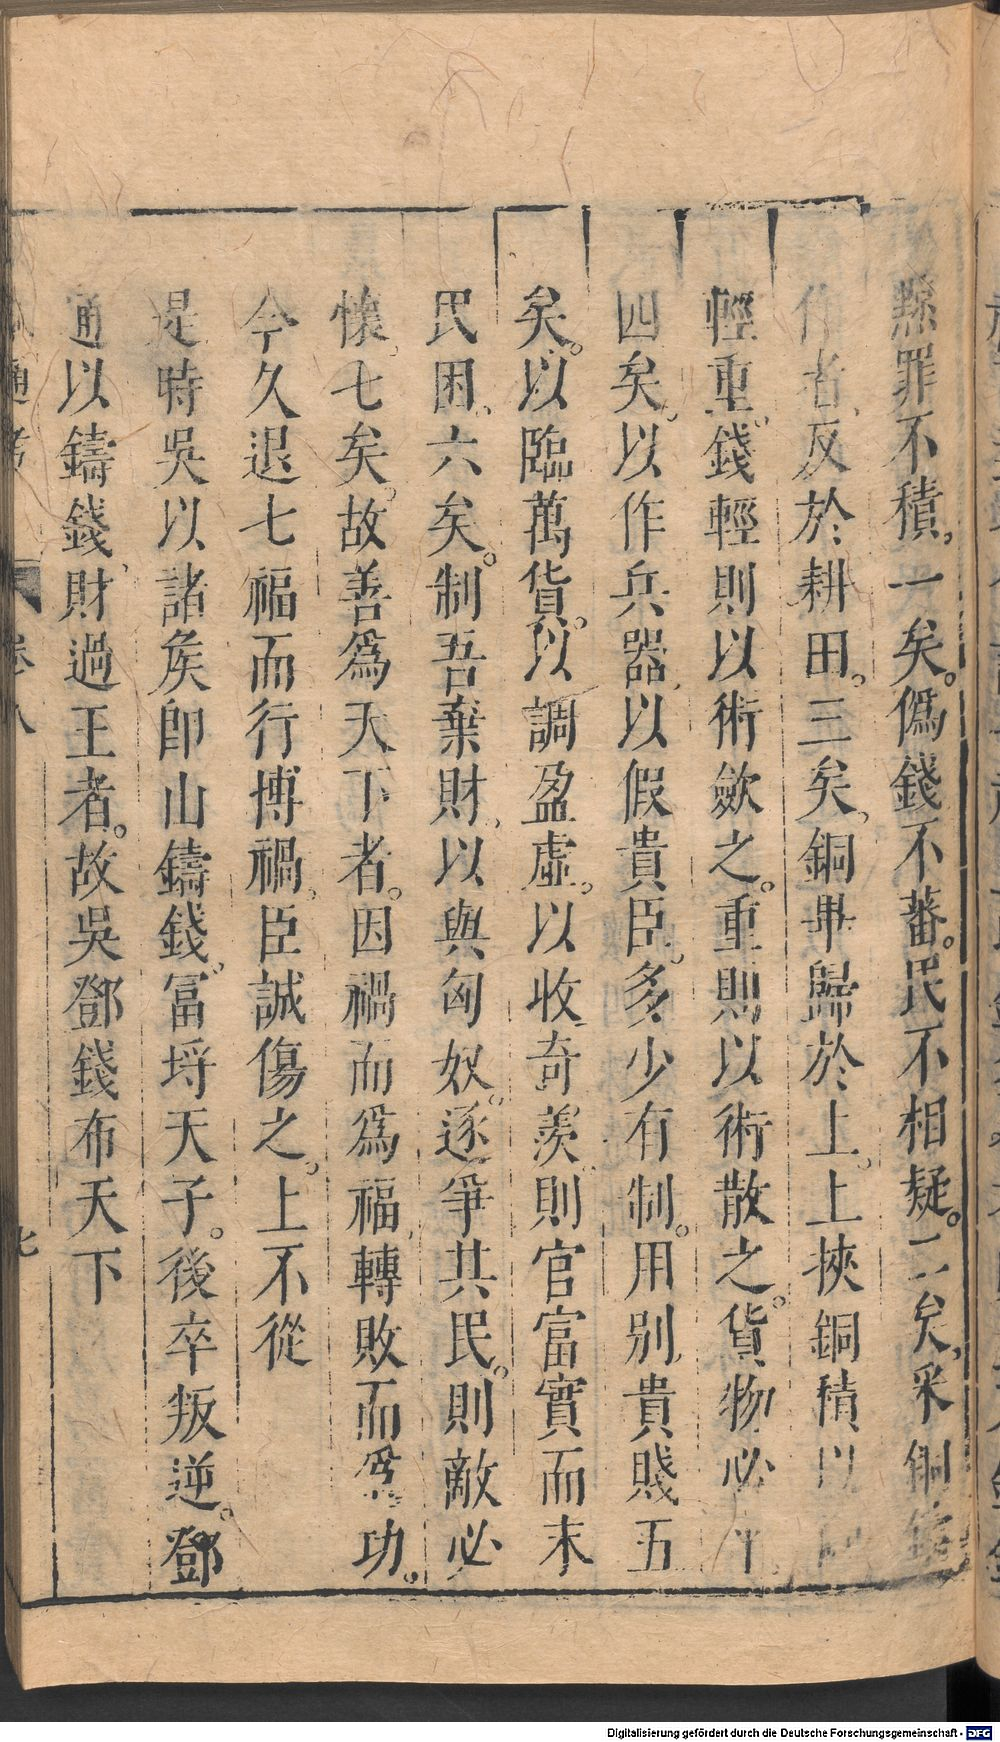 黥罪不積，一矣。僞錢不蕃。民不相疑。二矣，采銅鑄
作者，反於耕田。三矣，銅畢歸於上。上挾銅積以
輕重。錢輕則以術斂之。重則以術散之。貨物必平，
四矣，以作兵器，以假貴臣，多少有制。用别貴賤五
矣。以臨萬貨。以調盈虛，以收奇羨則官富實而末
民困，六矣。制吾棄財，以與匈奴逐爭其民。則敵必
懷，七矣。故善爲天下者。因禍而爲福，轉敗而爲功。
今久退七福而行博禍，臣誠傷之。上不從
是時吳以諸矦卽山鑄錢，富埒天子。後卒叛逆。鄧
通以鑄錢，財過王者。故吳鄧錢布天下
通考
卷八
七
Digitalisierung gefördert durch die Deutsche Forschungsgemeinschaft - DFG